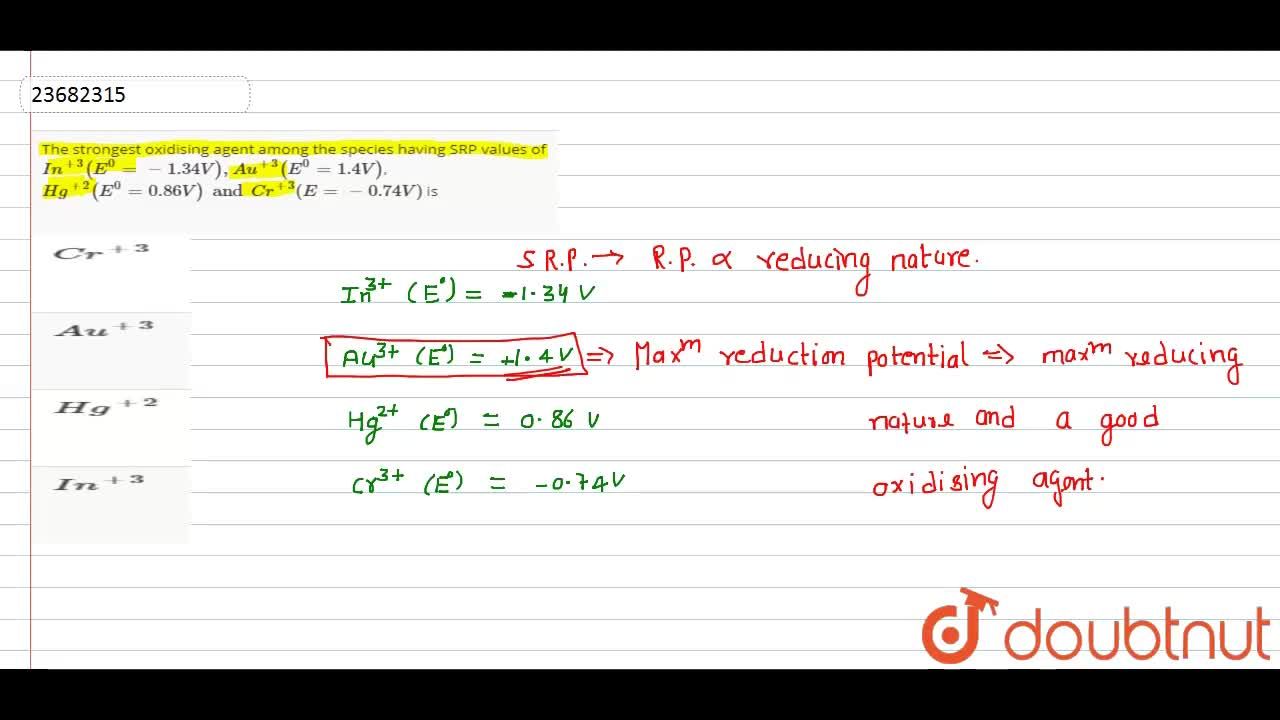 23682315
The strongest oxidising agent among the species having SRP values of
In⁺³(E⁰ = −1.34V), Au⁺³(E⁰ = 1.4V),
Hg⁺²(E⁰ = 0.86V) and Cr⁺³(E = −0.74V) is
Cr⁺³
Au⁺³
Hg⁺²
In⁺³
S R.P. → R.P. ∝ reducing nature.
In³⁺ (E°) = -1.34 V
Au³⁺ (E°) = +1.4 V ⇒ Maxᵐ reduction potential ⇒ maxᵐ reducing
Hg²⁺ (E°) = 0.86 V nature and a good
Cr³⁺ (E°) = -0.74V oxidising agent.
doubtnut